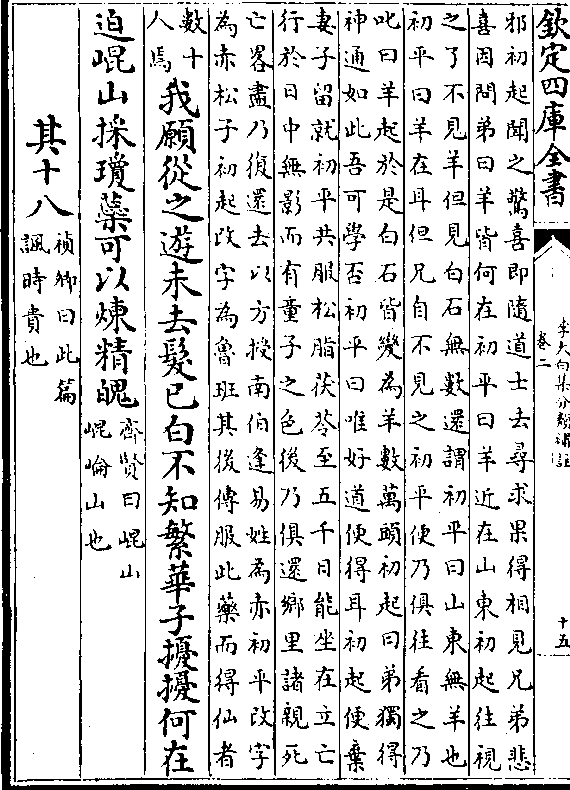 欽定四庫全書
李太白集分類補註
卷二
十五
邪初起聞之驚喜即隨道士去尋求果得相見兄弟悲
喜因問弟曰羊皆何在初平曰羊近在山東初起往視
之了不見羊但見白石無數還謂初平曰山東無羊也
初平曰羊在耳但兄自不見之初平便乃俱往看之乃
叱曰羊起於是白石皆變為羊數萬頭初起曰弟獨得
神通如此吾可學否初平曰唯好道便得耳初起便棄
妻子留就初平共服松脂茯苓至五千日能坐在立亡
行於日中無影而有童子之色後乃俱還鄉里諸親死
亡畧盡乃復還去以方授南伯逢易姓為赤初平改字
為赤松子初起改字為魯班其後傳服此藥而得仙者
數十
人焉
我願從之遊未去髮已白不知繁華子擾擾何在
迫崐山採瓊蘂可以煉精魄
齊賢曰崐山
崐崙山也
其十八
禎卿曰此篇
諷時貴也